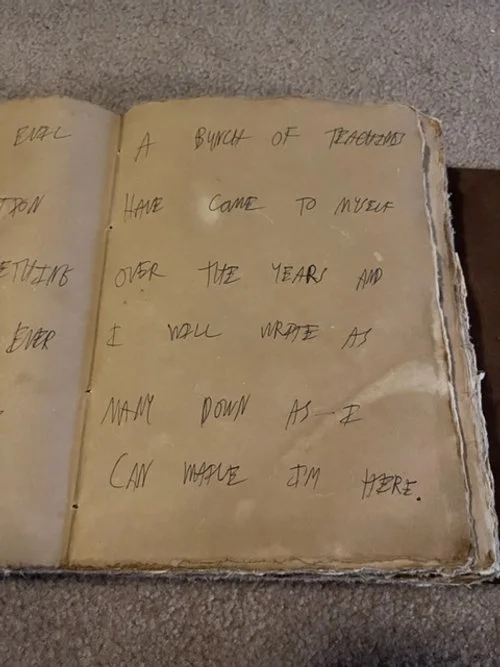 EVIL
ETHING
EVER
A BUNCH OF TEACHINGS
HAVE COME TO MYSELF
OVER THE YEARS AND
I WILL WRITE AS
MANY DOWN AS I
CAN WHILE I'M HERE.